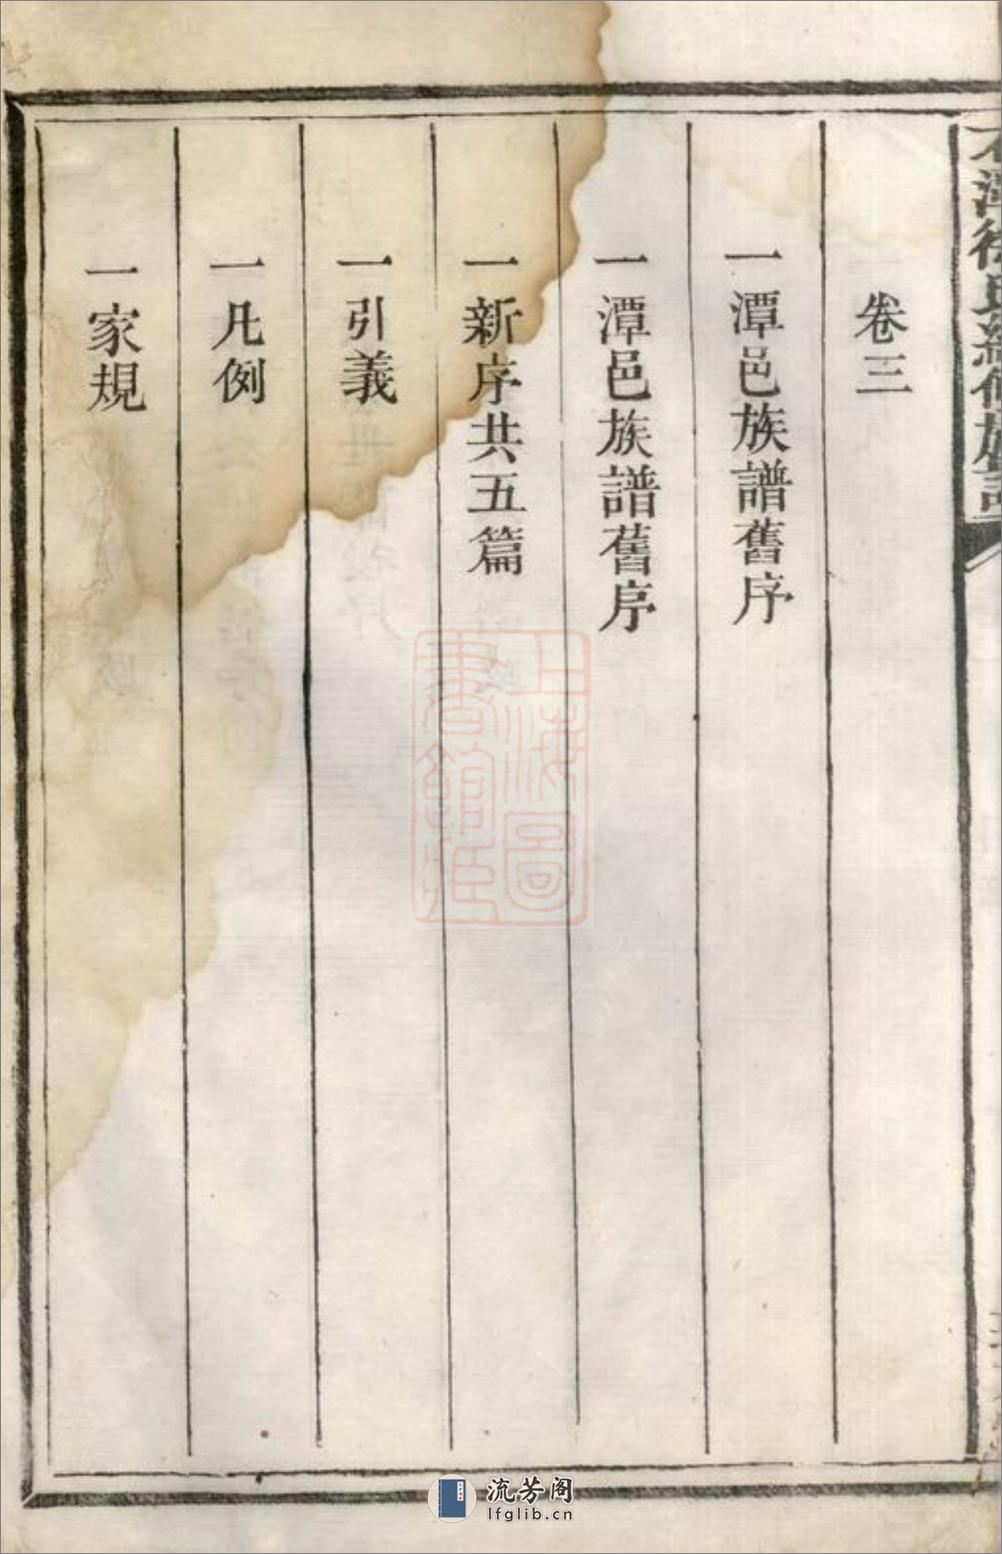 卷三
一潭邑族譜舊序
一潭邑族譜舊序
一新序共五篇
一引義
一凡例
一家規
上海圖書館藏
流芳阁
lfglib.cn